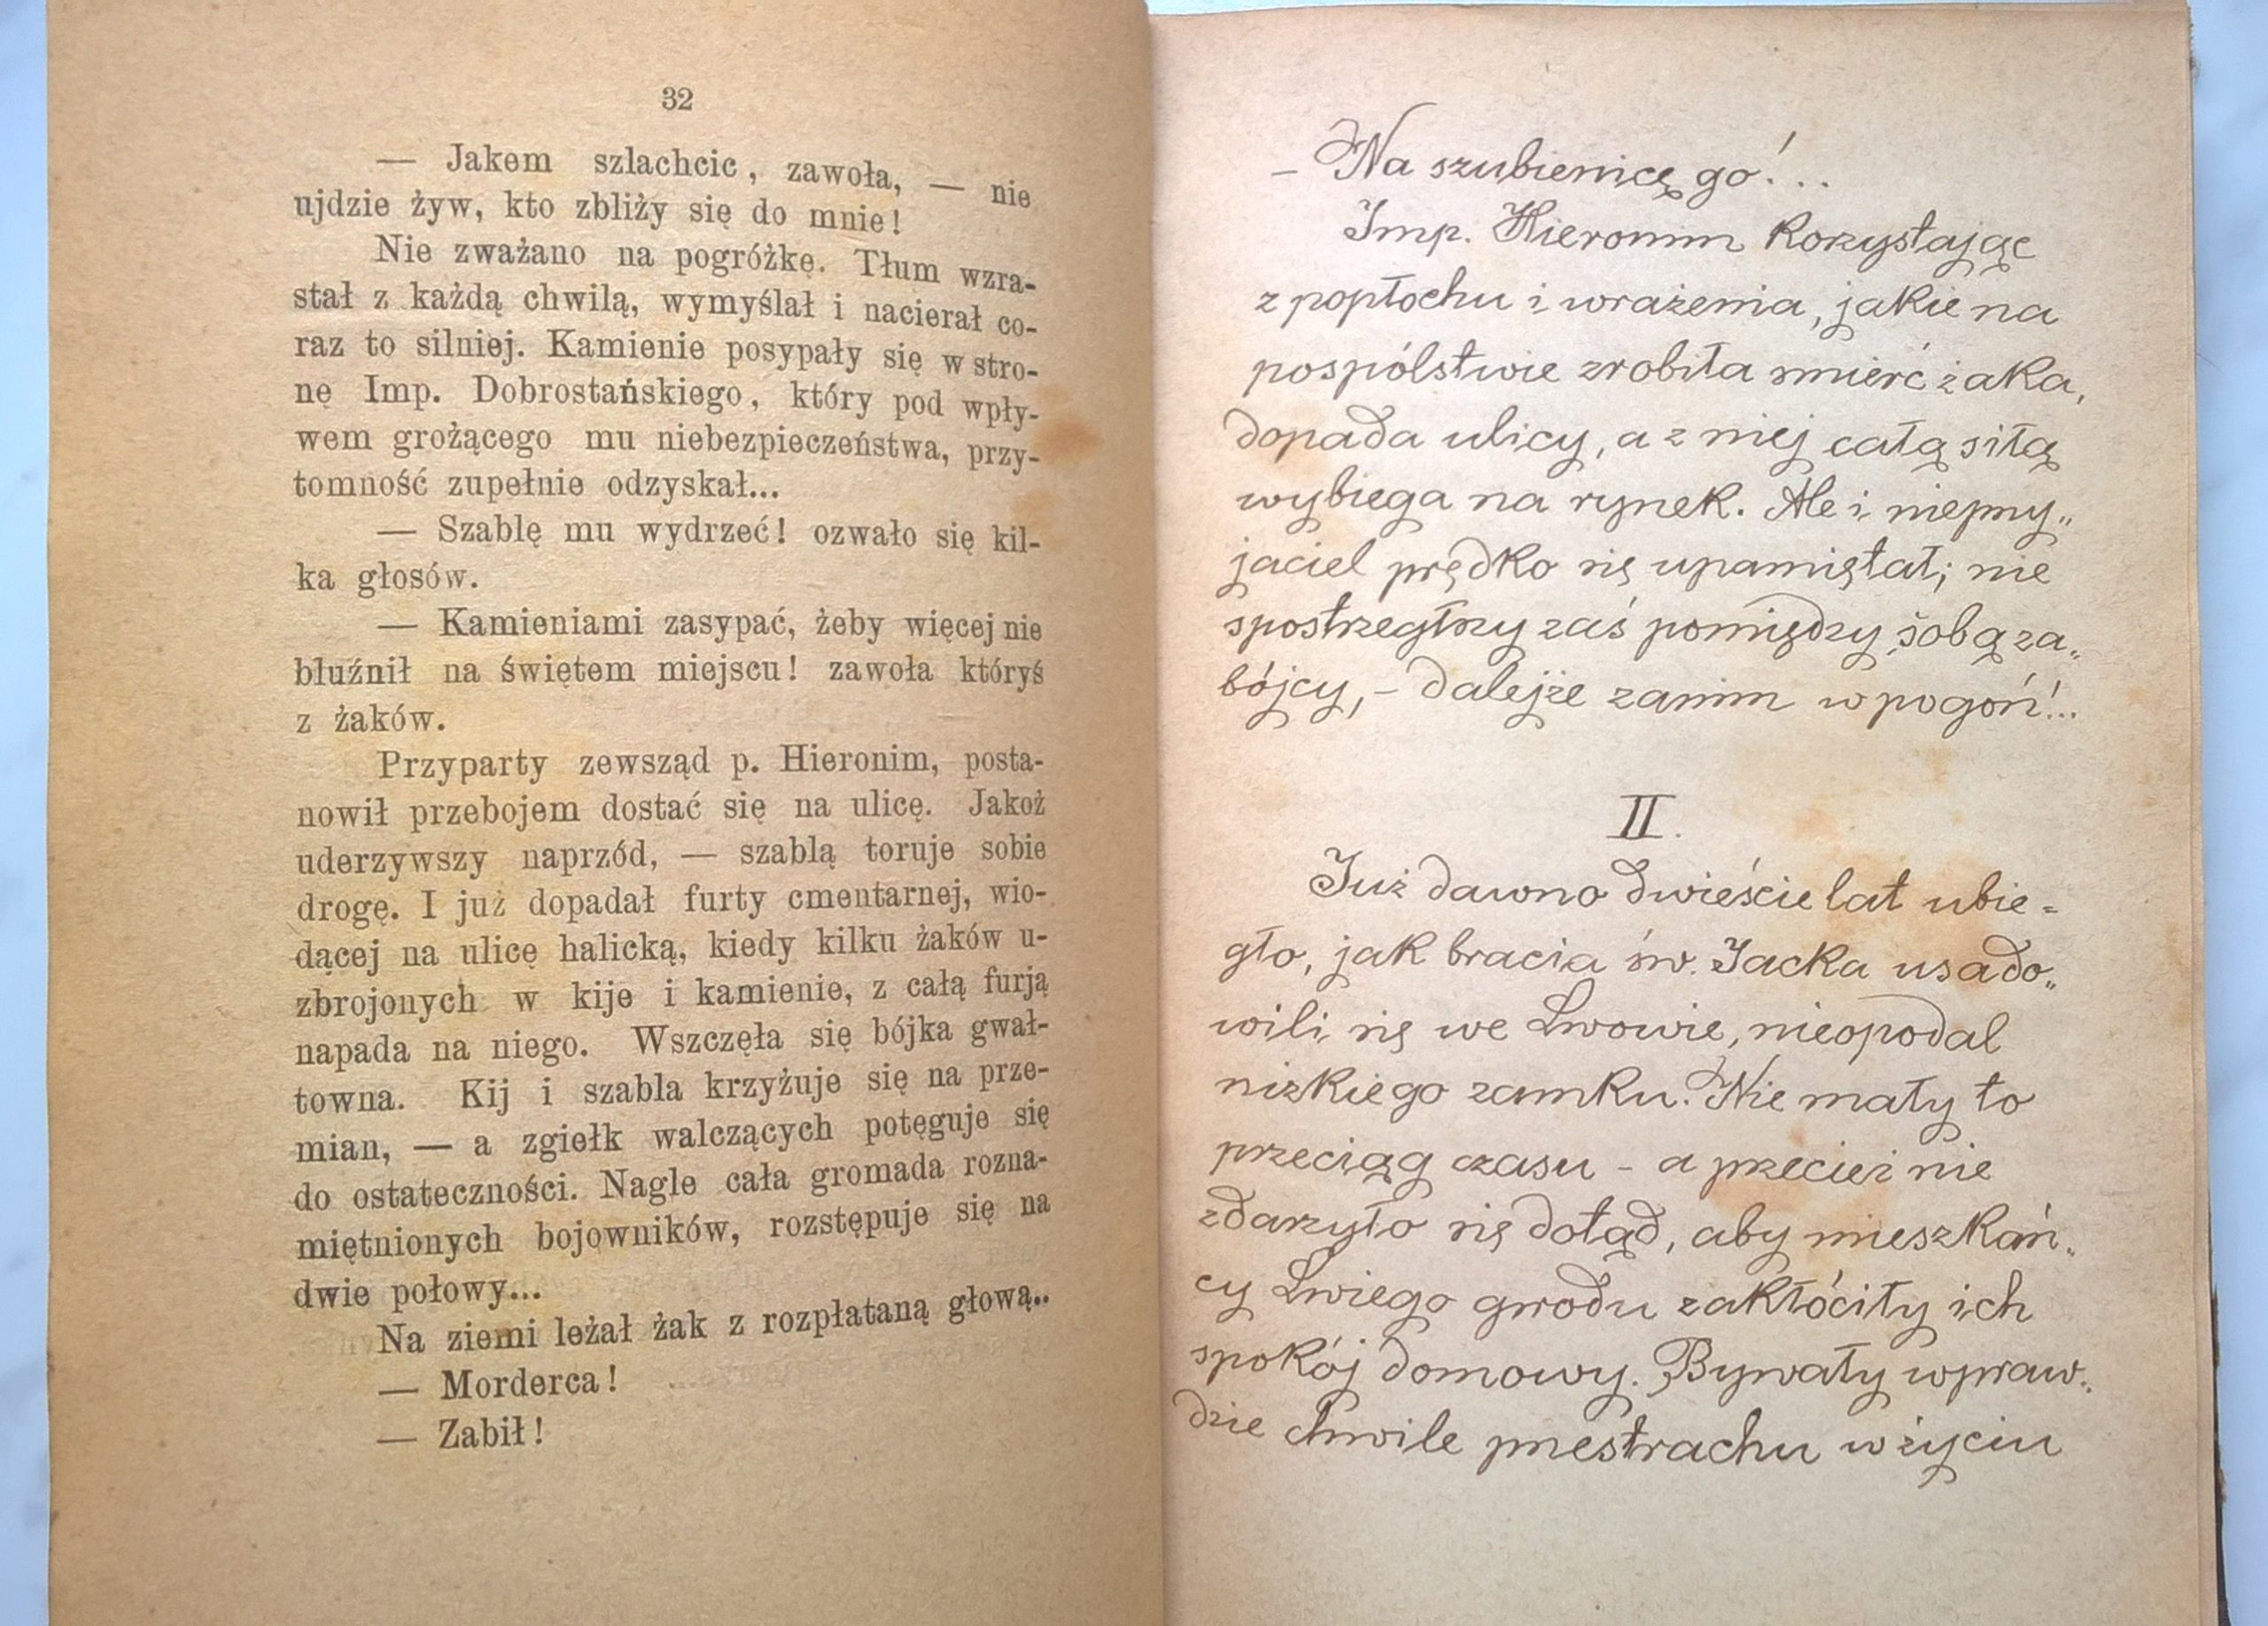 32
— Jakem szlachcic, zawoła, — nie
ujdzie żyw, kto zbliży się do mnie!
Nie zważano na pogróżkę. Tłum wzra-
stał z każdą chwilą, wymyślał i nacierał co-
raz to silniej. Kamienie posypały się w stro-
nę Imp. Dobrostańskiego, który pod wpły-
wem grożącego mu niebezpieczeństwa, przy-
tomność zupełnie odzyskał...
— Szablę mu wydrzeć! ozwało się kil-
ka głosów.
— Kamieniami zasypać, żeby więcej nie
bluźnił na świętem miejscu! zawoła któryś
z żaków.
Przyparty zewsząd p. Hieronim, posta-
nowił przebojem dostać się na ulicę. Jakoż
uderzywszy naprzód, — szablą toruje sobie
drogę. I już dopadał furty cmentarnej, wio-
dącej na ulicę halicką, kiedy kilku żaków u-
zbrojonych w kije i kamienie, z całą furją
napada na niego. Wszczęła się bójka gwał-
towna. Kij i szabla krzyżuje się na prze-
mian, — a zgiełk walczących potęguje się
do ostateczności. Nagle cała gromada rozna-
miętnionych bojowników, rozstępuje się na
dwie połowy...
Na ziemi leżał żak z rozpłataną głową..
— Morderca!
— Zabił!
– Na szubienicę go!...
Imp. Hieronim korzystając
z popłochu i wrażenia, jakie na
pospólstwie zrobiła śmierć żaka,
dopada ulicy, a z niej całą siłą
wybiega na rynek. Ale i nieprzy„
jaciel prędko się upamiętał; nie
spostrzegłszy zaś pomiędzy sobą za„
bójcy, – dalejże zanim w pogoń!..
II.
Już dawno dwieście lat ubie=
gło, jak bracia św. Jacka usado„
wili się we Lwowie, nieopodal
nizkiego zamku. Nie mały to
przeciąg czasu – a przecież nie
zdarzyło się dotąd, aby mieszkań„
cy Lwiego grodu zakłócity ich
spokój domowy. Bywały wpraw„
dzie chwile przestrachu w życiu